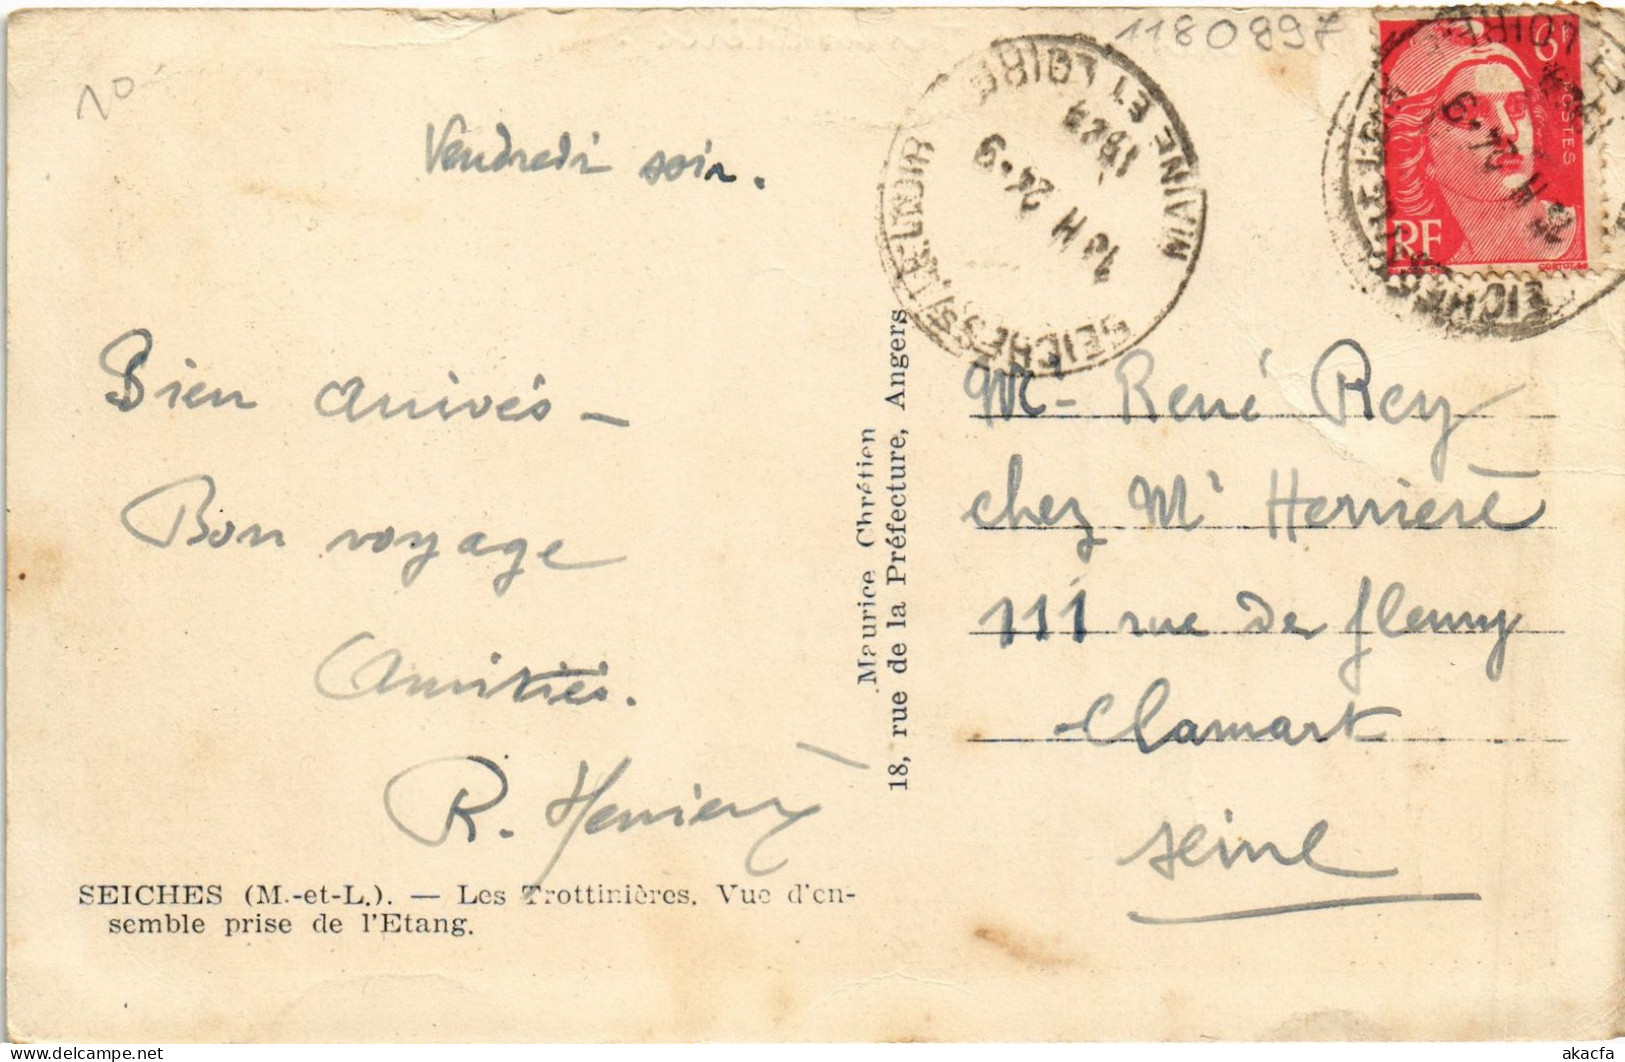 1180897
10-
Vendredi soir.
Bien arrivés -
Bon voyage
Amitiés.
SEICHES (M.-et-L.). — Les Trottinières. Vue d'en-
semble prise de l'Etang.
Maurice Chrétien
18, rue de la Préfecture, Angers
SEICHES S/ LE LOIR
MAINE ET LOIRE
18 H 24-9
POSTES
RF
Mr René Rey
chez Mr
111 rue de
Clamart
Seine
R.
akacfa